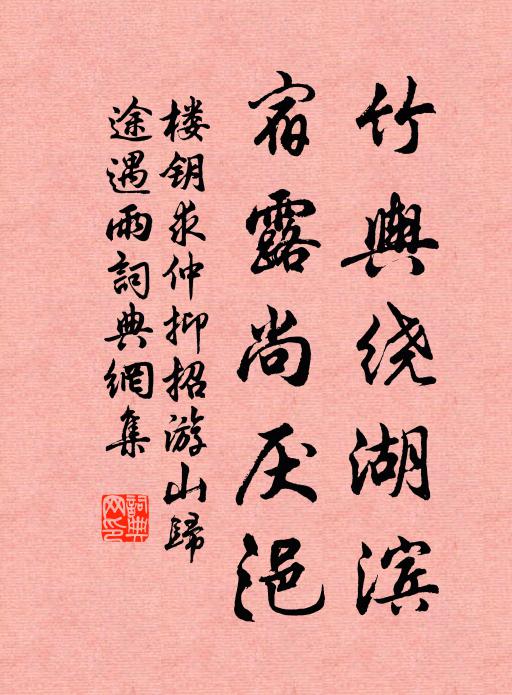 竹輿绕湖滨
宿露尚厌浥
楼钥求仲抑招游山歸
途遇雨詞典網集
詞典网印